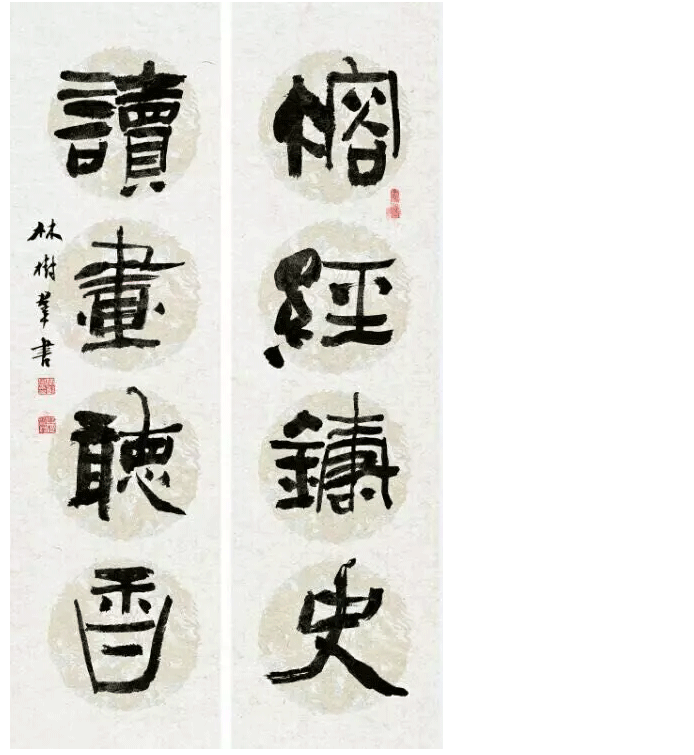 熔經鑄史
讀畫聽香
林樹書